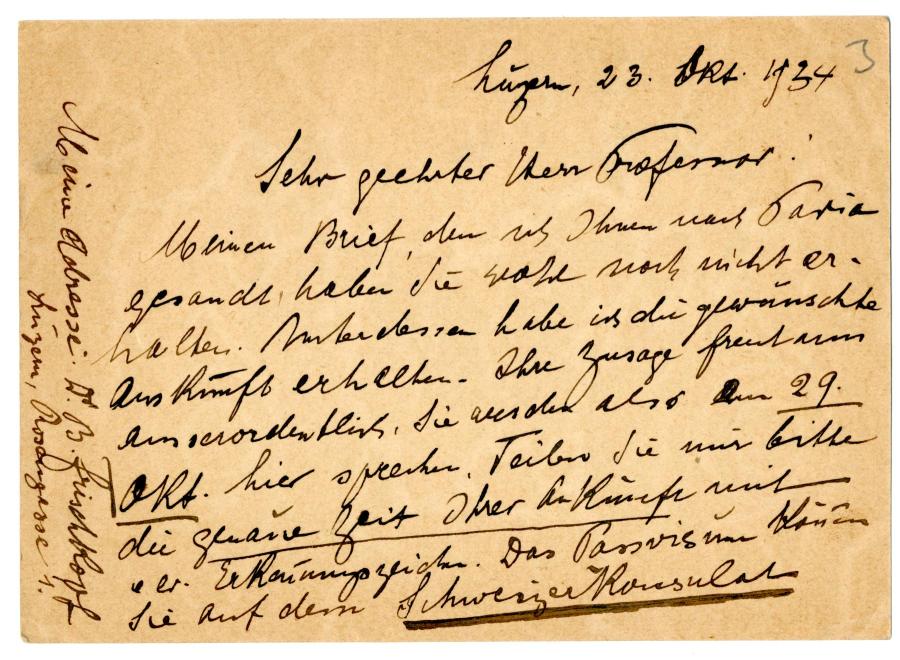 3
Luzern, 23. Okt. 1934
Sehr geehrter Herr Professor!
Meinen Brief, den ich Ihnen nach Paris
gesandt, haben Sie wohl noch nicht er-
halten. Unterdessen habe ich die gewünschte
Auskunft erhalten. Ihre Zusage freut uns
ausserordentlich. Sie werden also am 29.
Okt. hier sprechen. Teilen Sie mir bitte
die genaue Zeit Ihrer Ankunft mit
Erkennungszeichen. Das Passvisum können
Sie auf dem Schweizer Konsulat
Meine Adresse: Dr. B. Frischkopf
Luzern, Rosengasse 4.